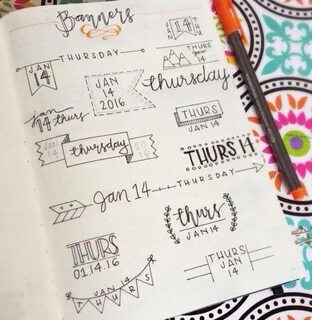 Banners
JAN
14
THURSDAY
14
THURS
JAN
14
JAN
14
2016
thursday
Jan
14 thurs
THURS
JAN 14
JAN
14
thursday
2016
THURS 14
Jan 14
THURSDAY
thurs
JAN 14
THURS
01.14.16
THURS
JAN
14
JAN 14
THURS